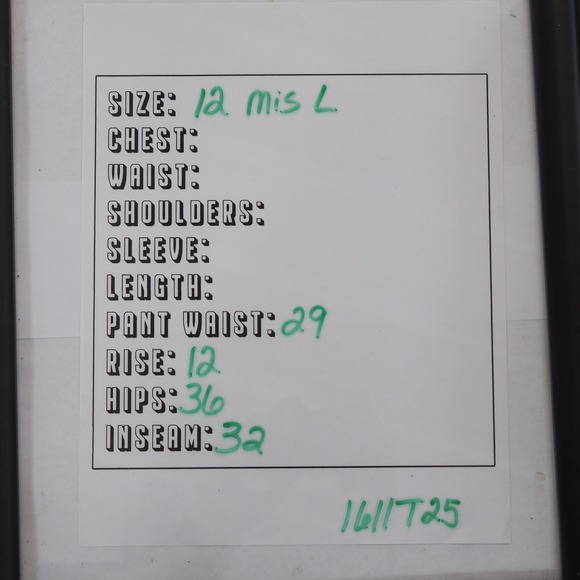 SIZE: 12 mis L
CHEST:
WAIST:
SHOULDERS:
SLEEVE:
LENGTH:
PANT WAIST: 29
RISE: 12
HIPS: 36
INSEAM: 32
1611T25